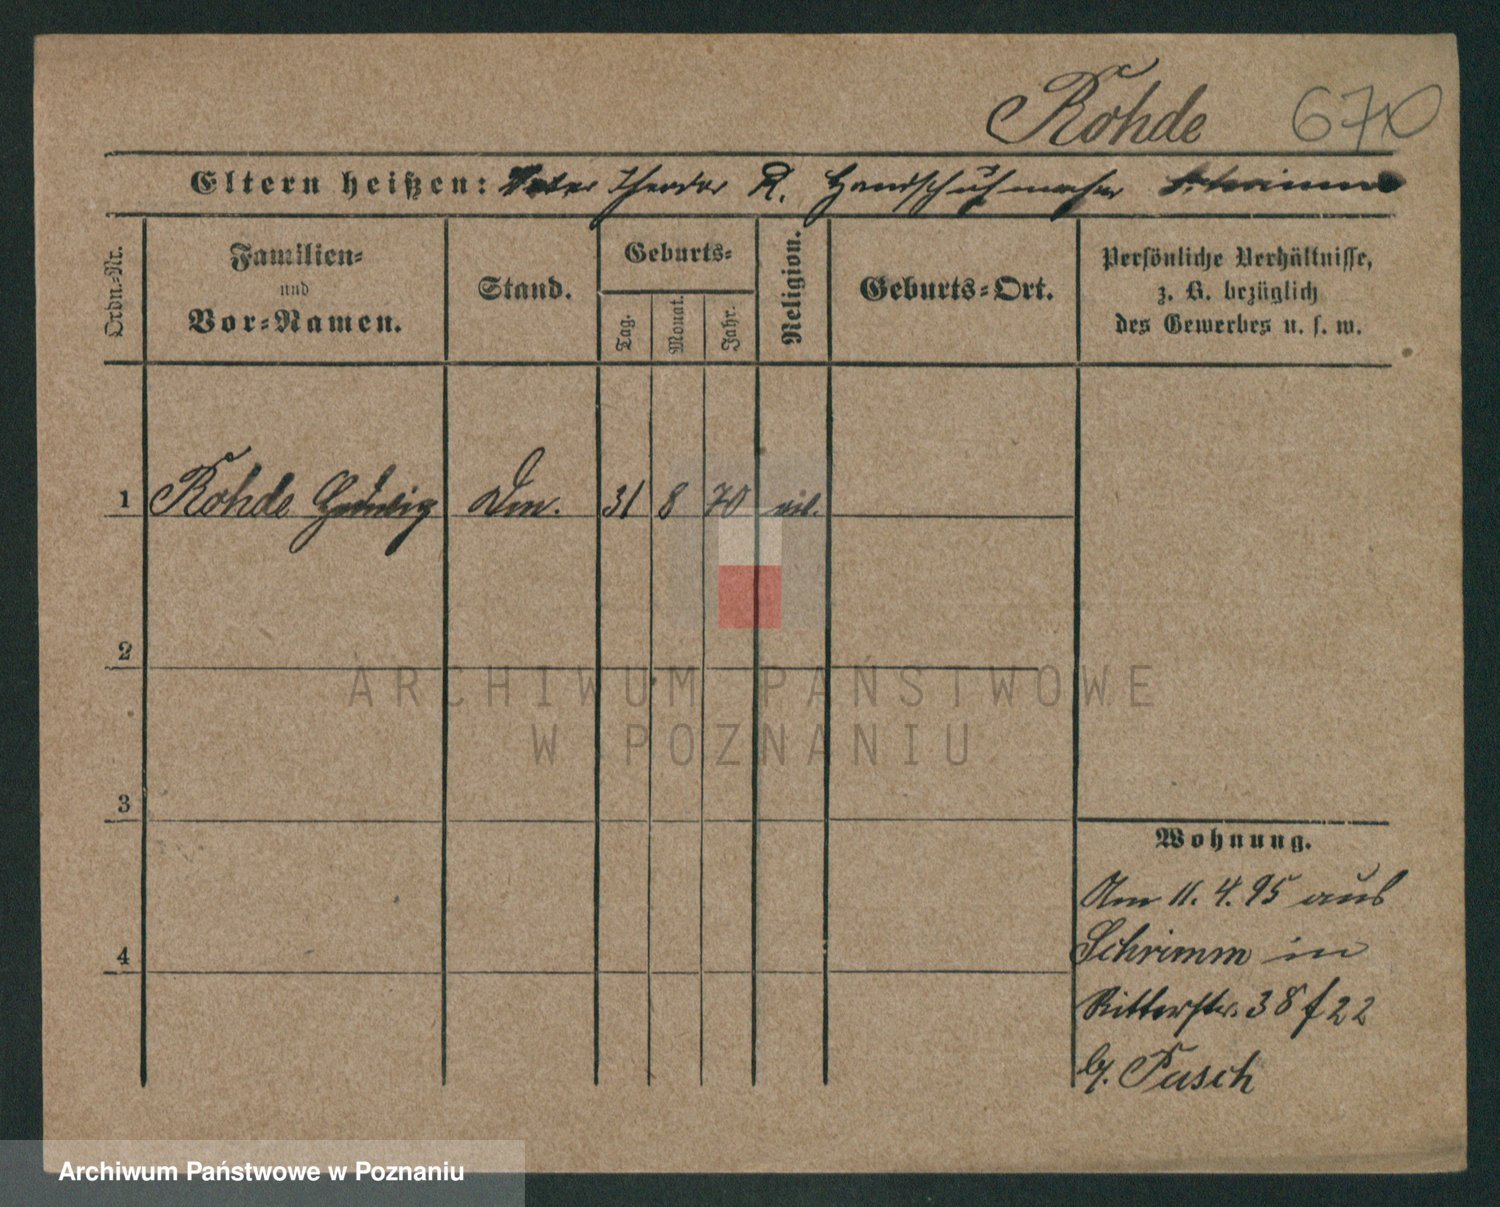 Rohde 670
Eltern heißen: Vater Theodor R. Handschuhmacher Schrimm
Ordn.-Nr.
Familien-
und
Vor-Namen.
Stand.
Geburts-
Tag.
Monat.
Jahr.
Religion.
Geburts-Ort.
Persönliche Verhältnisse,
z. B. bezüglich
des Gewerbes u. s. w.
1 Rohde Hedwig 31 8 70
2
ARCHIWUM PAŃSTWOWE
W POZNANIU
3
Wohnung.
Am 11. 4. 95 aus
4
Schrimm in
Ritterstr. 38 f 22
b/. Pusch
Archiwum Państwowe w Poznaniu